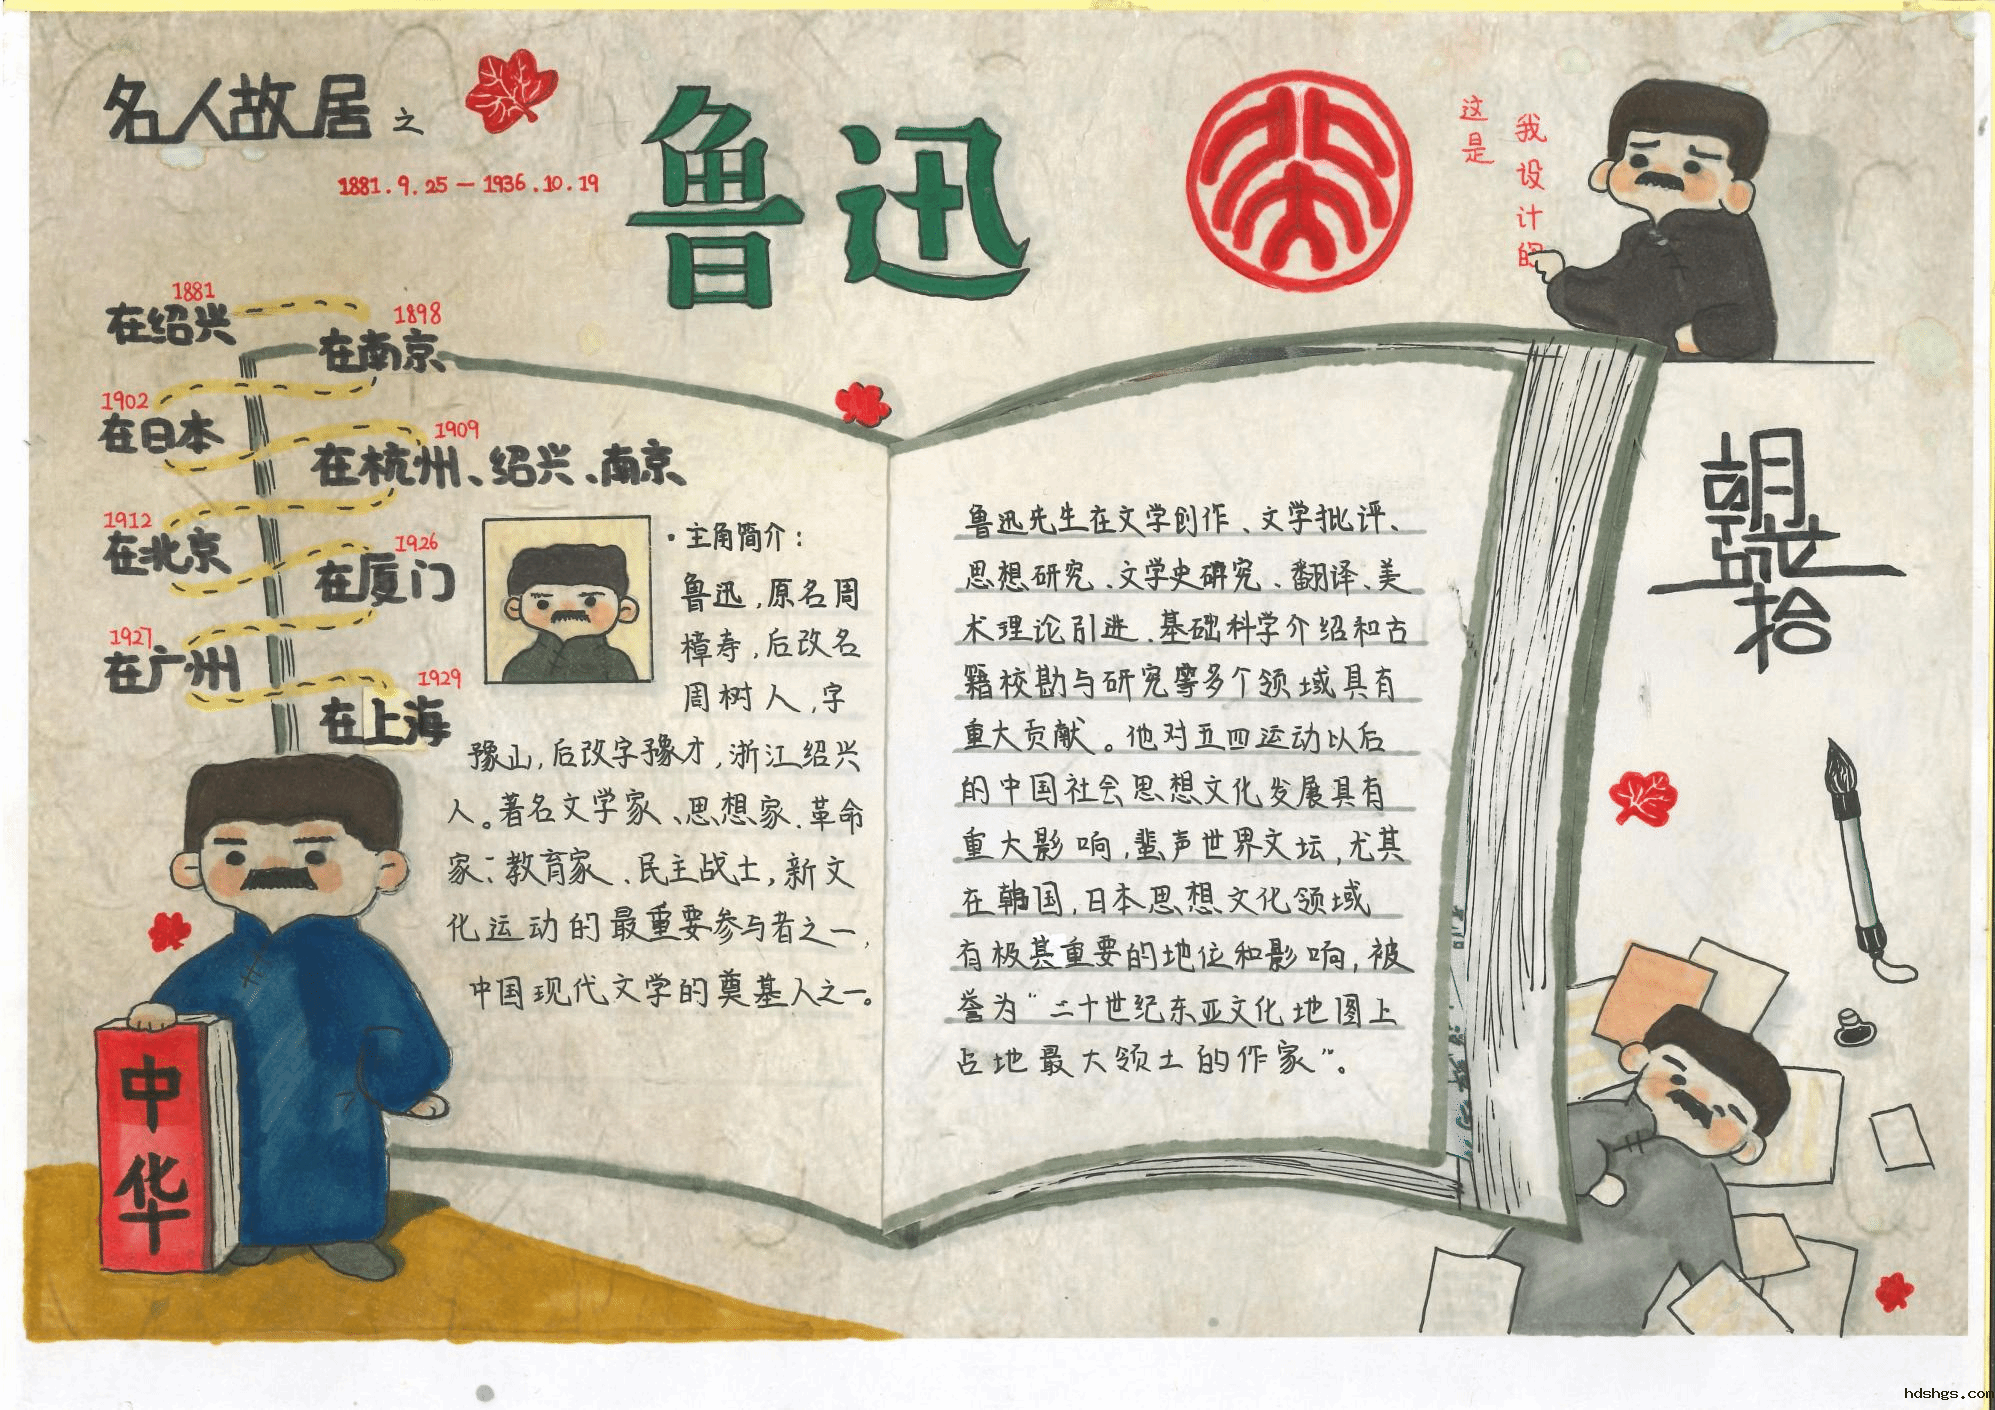 名人故居之
1881.9.25－1936.10.19
鲁迅
这是
我设计的
1881
在绍兴
1898
在南京
1902
在日本
1909
在杭州、绍兴、南京
1912
在北京
1926
在厦门
1927
在广州
1929
在上海
·主角简介：
鲁迅，原名周
樟寿，后改名
周树人，字
豫山，后改字豫才，浙江绍兴
人。著名文学家、思想家、革命
家、教育家、民主战士，新文
化运动的最重要参与者之一，
中国现代文学的奠基人之一。
鲁迅先生在文学创作、文学批评、
思想研究、文学史研究、翻译、美
术理论引进、基础科学介绍和古
籍校勘与研究等多个领域具有
重大贡献。他对五四运动以后
的中国社会思想文化发展具有
重大影响，蜚声世界文坛，尤其
在韩国，日本思想文化领域
有极其重要的地位和影响，被
誉为“二十世纪东亚文化地图上
占地最大领土的作家”。
朝花夕拾
中华
hdshgs.com